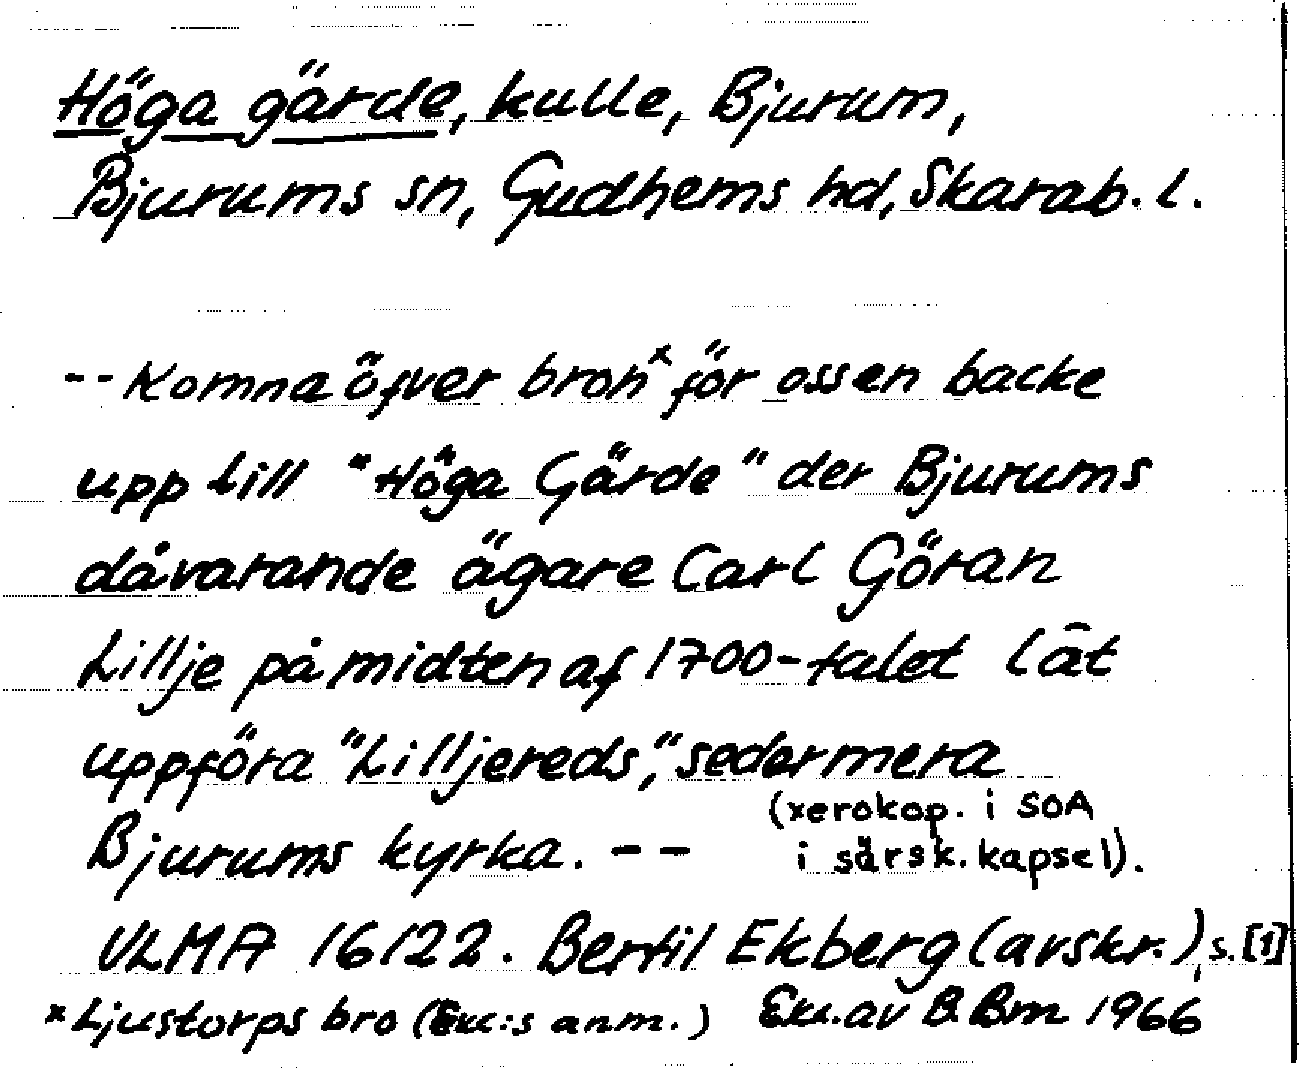 Höga gärde, kulle, Bjurum,
Bjurums sn, Gudhems hd, Skarab. l.
-- Komna öfver bron× för ossen backe
upp till "Höga Gärde" der Bjurums
dåvarande ägare Carl Göran
Lillje på midten af 1700-talet lät
uppföra "Lilljereds", sedermera
Bjurums kyrka. --
(xerokop. i SOA
i särsk. kapsel).
ULMA 16122. Bertil Ekberg (avskr.), s. [1]
× Ljustorps bro (Exc:s anm.) Exc. av B. Bm 1966